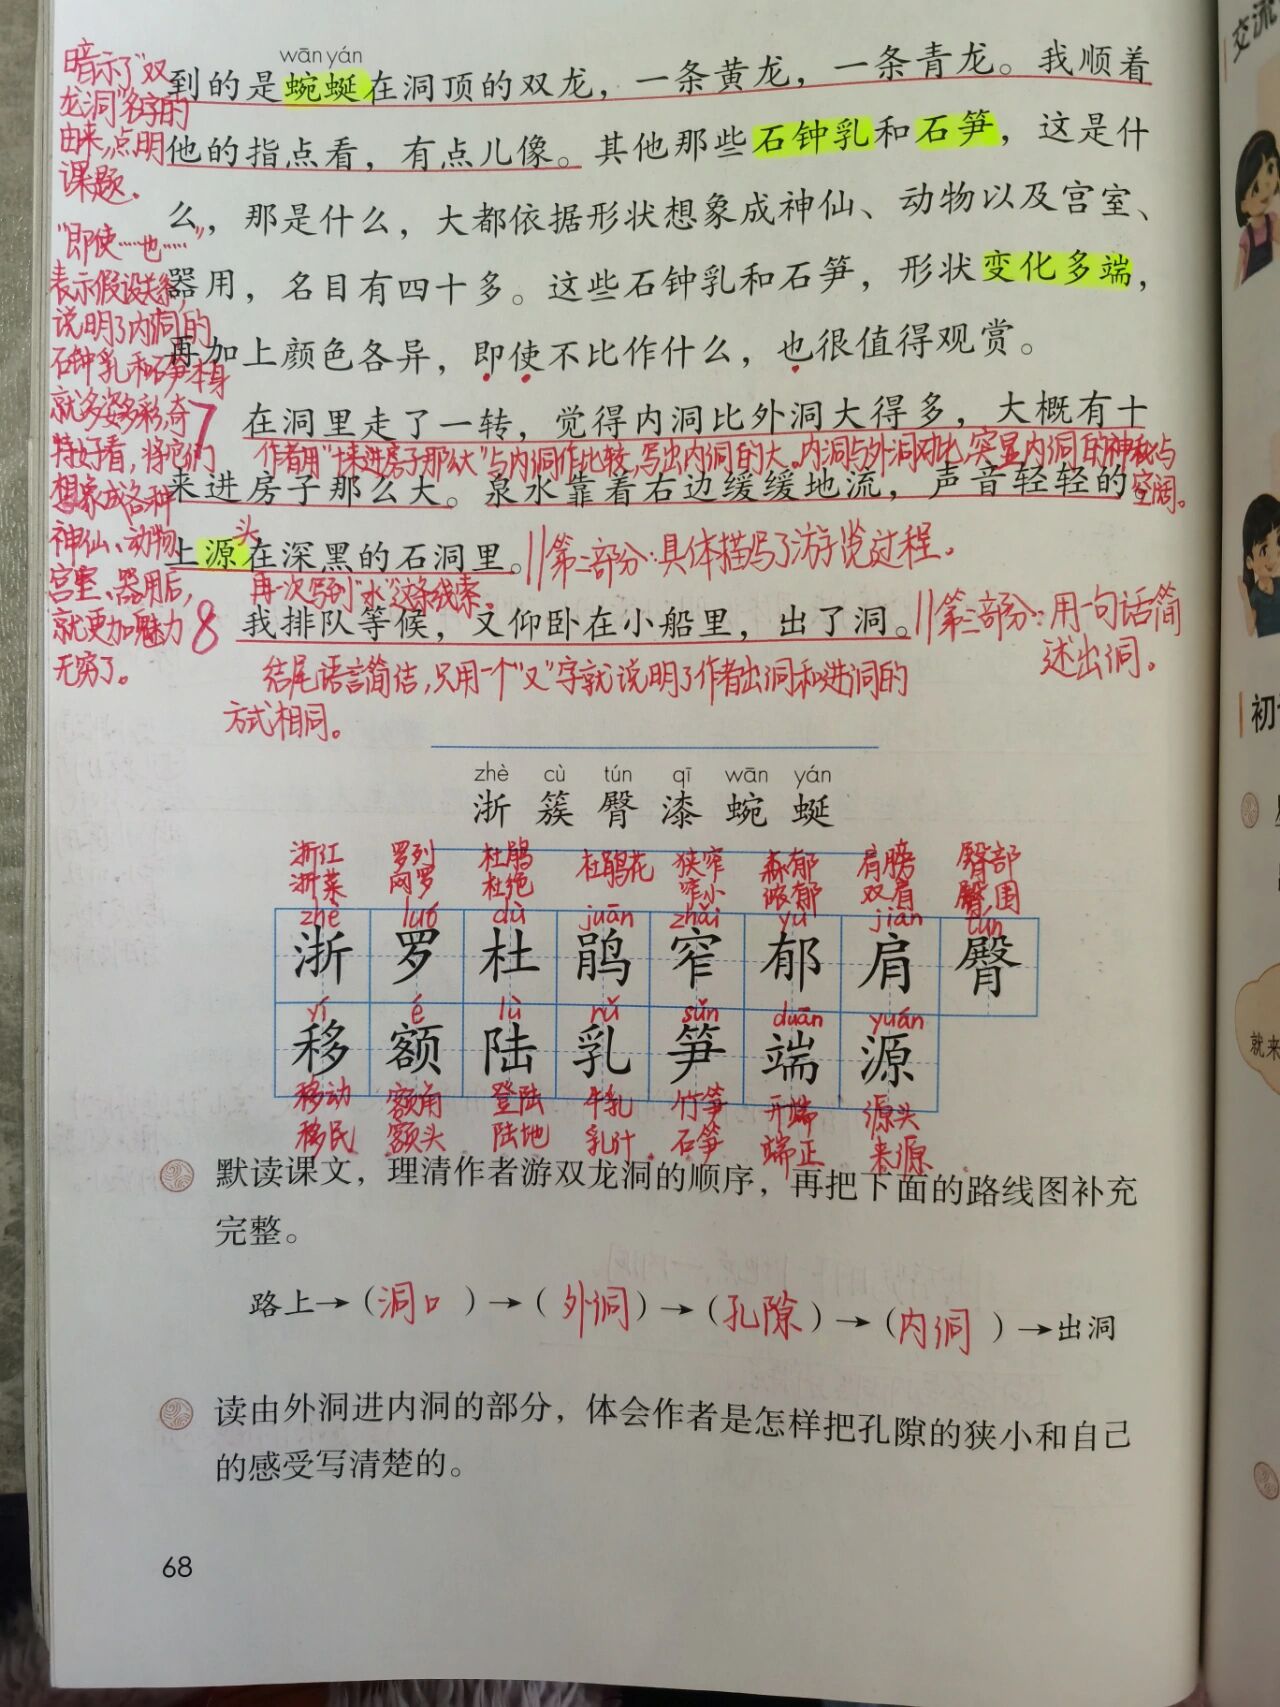 wān yán
到的是蜿蜒在洞顶的双龙，一条黄龙，一条青龙。我顺着
他的指点看，有点儿像。其他那些石钟乳和石笋，这是什
么，那是什么，大都依据形状想象成神仙、动物以及宫室、
器用，名目有四十多。这些石钟乳和石笋，形状变化多端，
再加上颜色各异，即使不比作什么，也很值得观赏。
暗示了“双
龙洞”名字的
由来，点明
课题。
“即使……也……”
表示假设关系，
说明了内洞的
石钟乳和石笋本身
就多姿多彩，奇
特好看，将它们
想象成各种
神仙、动物
宫室、器用后，
就更加魅力
无穷了。
7 在洞里走了一转，觉得内洞比外洞大得多，大概有十
作者用“十来进房子那么大”与内洞作比较，写出内洞的大。内洞与外洞对比，突显内洞的神秘与
空阔。
来进房子那么大。泉水靠着右边缓缓地流，声音轻轻的。
头
上源在深黑的石洞里。||第二部分：具体描写了游览过程。
再一次写到“水”这条线索。
8 我排队等候，又仰卧在小船里，出了洞。||第三部分：用一句话简
述出洞。
结尾语言简洁，只用一个“又”字就说明了作者出洞和进洞的
方式相同。
zhè cù tún qī wān yán
浙 簇 臀 漆 蜿 蜒
浙江 罗列 杜鹃 杜鹃花 狭窄 森郁 肩膀 臀部
浙菜 网罗 杜绝 窄小 浓郁 双肩 臀围
zhè luó dù juān zhǎi yù jiān tún
浙 罗 杜 鹃 窄 郁 肩 臀
yí é lù rǔ sǔn duān yuán
移 额 陆 乳 笋 端 源
移动 额角 登陆 牛乳 竹笋 开端 源头
移民 额头 陆地 乳汁 石笋 端正 来源
默读课文，理清作者游双龙洞的顺序，再把下面的路线图补充
完整。
路上→（洞口）→（外洞）→（孔隙）→（内洞）→出洞
读由外洞进内洞的部分，体会作者是怎样把孔隙的狭小和自己
的感受写清楚的。
68
交流
初
就来